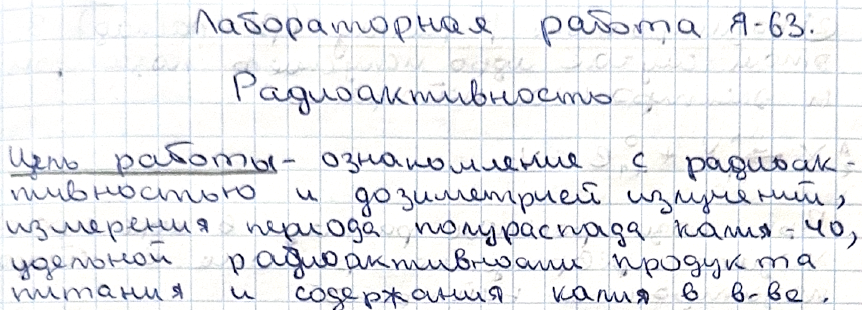 Лабораторная работа Я-63.
Радиоактивность
Цель работы - ознакомление с радиоак-
тивностью и дозиметрией излучений,
измерения периода полураспада калия-40,
удельной радиоактивности продукта
питания и содержания калия в в-ве.